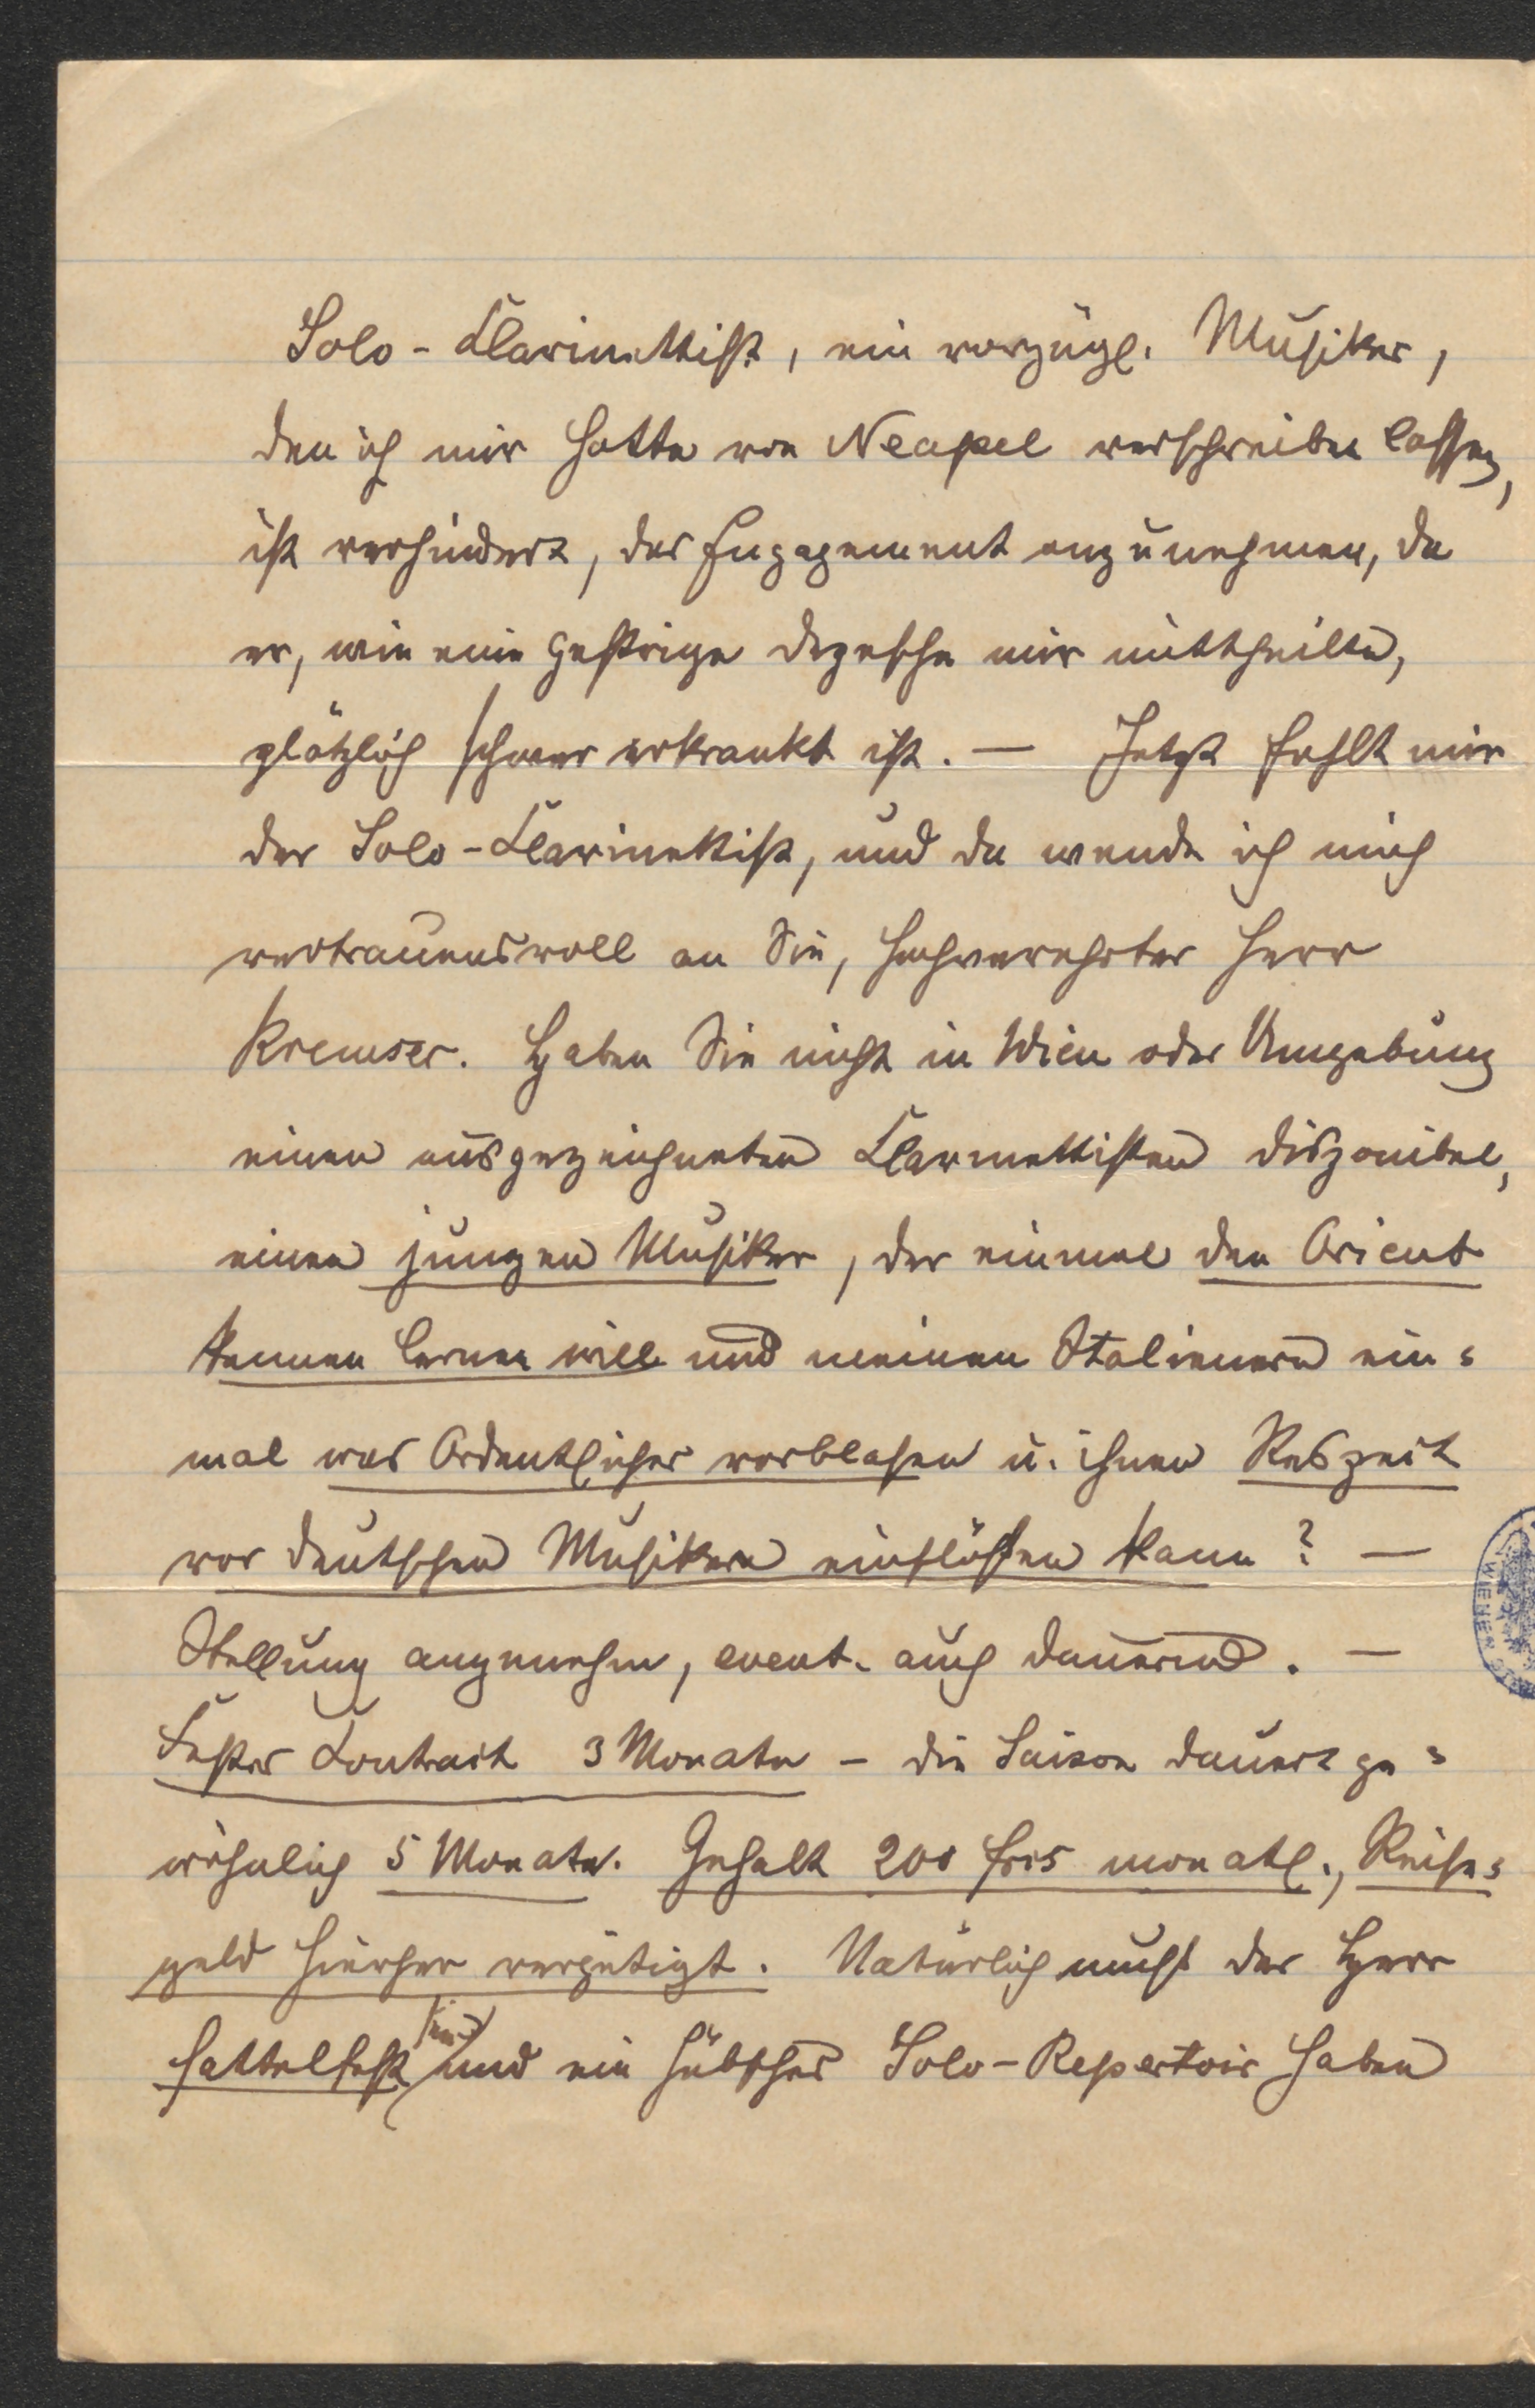 Solo-Clarinettist, ein vorzügl. Musiker,
den ich mir hatte von Neapel verschreiben lassen,
ist verhindert, das Engagement anzunehmen, da
er, wie eine gestrige Depesche mir mittheilte,
plötzlich schwer erkrankt ist. — Jetzt fehlt mir
der Solo-Clarinettist, und da wende ich mich
vertrauensvoll an Sie, hochverehrter Herr
Kremser. Haben Sie nicht in Wien oder Umgebung
einen ausgezeichneten Clarinettisten disponibel,
einen jungen Musiker, der einmal den Orient
kennen lernen will und meinen Italienern ein=
mal was Ordentliches vorblasen u. ihnen Respect
vor deutschen Musikern einflößen kann? —
Stellung angenehm, event. auch dauernd. —
Fester Contract 3 Monate – die Saison dauert ge=
wöhnlich 5 Monate. Gehalt 200 frcs monatl., Reise=
geld hierher vergütigt. Natürlich muß der Herr
sattelfest sein und ein hübsches Solo-Repertoir haben
WIENER